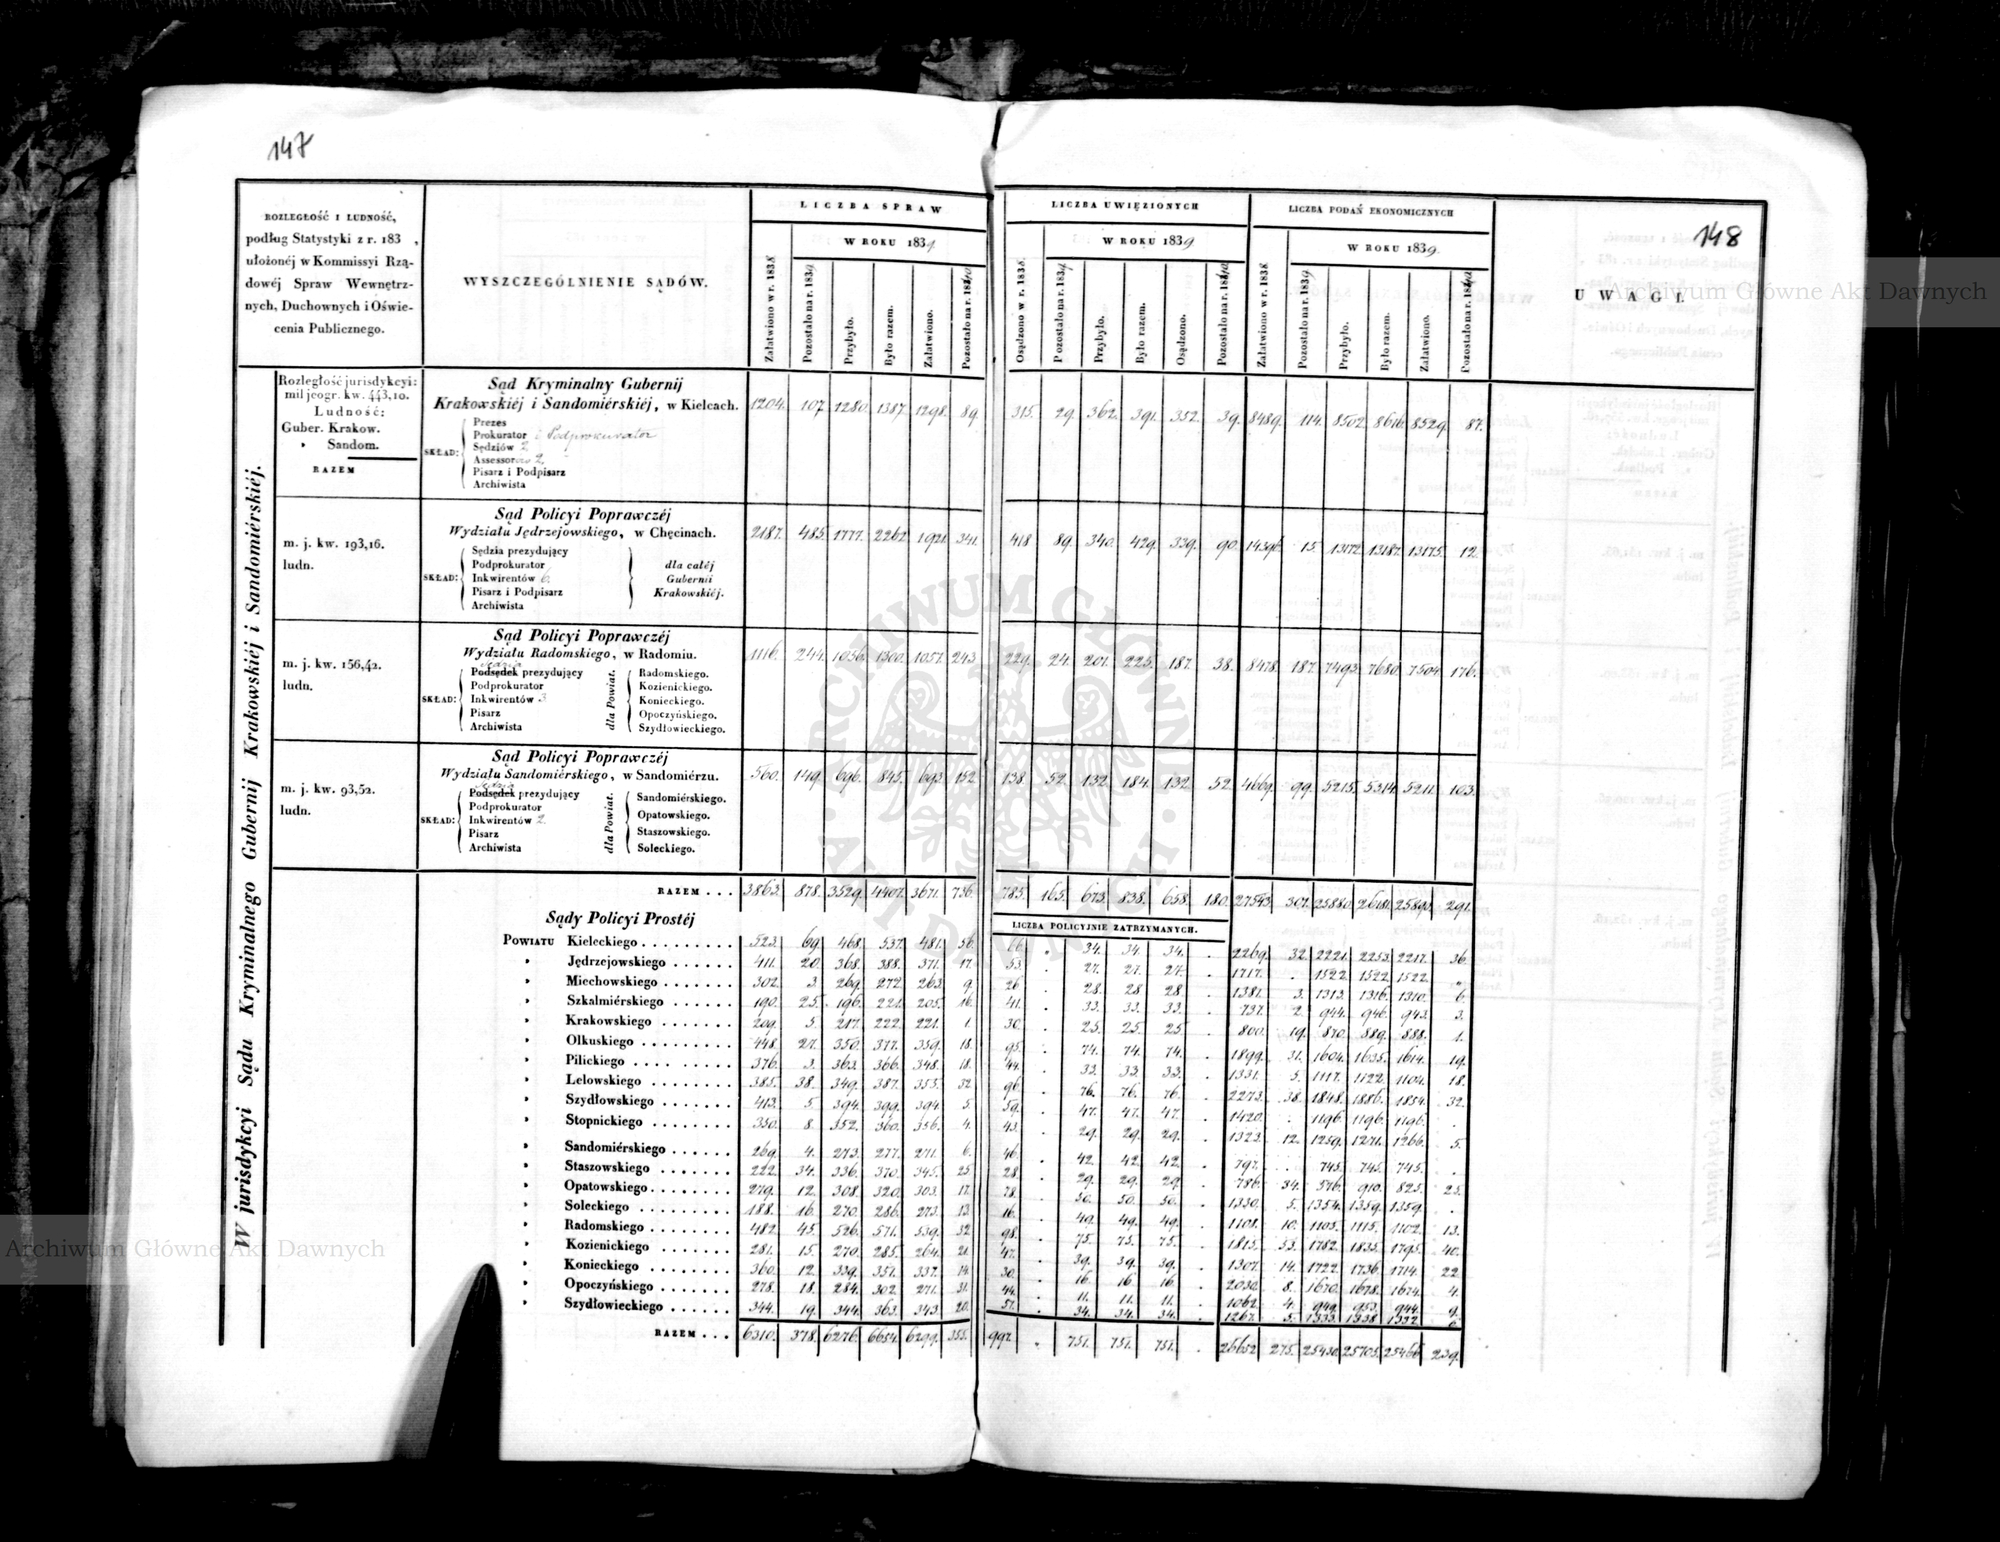 147
148
ROZLEGŁOŚĆ I LUDNOŚĆ,
podług Statystyki z r. 183 ,
ułożonéj w Kommissyi Rzą-
dowéj Spraw Wewnętrz-
nych, Duchownych i Oświe-
cenia Publicznego.
WYSZCZEGÓLNIENIE SĄDÓW.
LICZBA SPRAW
W ROKU 1839.
Załatwiono w r. 1838.
Pozostało na r. 1839
Przybyło.
Było razem.
Załatwiono.
Pozostało na r. 1840
LICZBA UWIĘZIONYCH
W ROKU 1839
Osądzono w r. 1838.
Pozostało na r. 1839
Przybyło.
Było razem.
Osądzono.
Pozostało na r. 1840
LICZBA PODAŃ EKONOMICZNYCH
W ROKU 1839.
Załatwiono w r. 1838
Pozostało na r. 1839
Przybyło.
Było razem.
Załatwiono.
Pozostało na r. 1840
UWAGI.
W jurisdykcyi Sądu Kryminalnego Gubernij Krakowskiéj i Sandomiérskiéj.
Rozległość jurisdykcyi:
mil jeogr. kw. 443,10.
Ludność:
Guber. Krakow.
» Sandom.
RAZEM
Sąd Kryminalny Gubernij
Krakowskiéj i Sandomiérskiéj, w Kielcach. 1204. 107. 1280. 1387. 1298. 89. 315. 29. 362. 391. 352. 39. 8489. 114. 8502. 8616. 8529. 87.
SKŁAD:
Prezes
Prokurator i Podprokurator
Sędziów 2
Assessorów 2
Pisarz i Podpisarz
Archiwista
m. j. kw. 193,16.
ludn.
Sąd Policyi Poprawczéj
Wydziału Jędrzejowskiego, w Chęcinach. 2187. 485. 1777. 2262. 1921. 341. 418 89. 340. 429. 339. 90. 15. 13172. 13187. 13175. 12.
SKŁAD:
Sędzia prezydujący
Podprokurator
Inkwirentów 6.
Pisarz i Podpisarz
Archiwista
dla całéj
Gubernii
Krakowskiéj.
m. j. kw. 156,42.
ludn.
Sąd Policyi Poprawczéj
Wydziału Radomskiego, w Radomiu. 1116. 244. 1056. 1300. 1057. 243 229. 24. 201. 225. 187. 38. 8478. 187. 7493. 7680. 7504. 176.
SKŁAD:
Sędzia
Podsędek prezydujący
Podprokurator
Inkwirentów 3
Pisarz
Archiwista
dla Powiat.
Radomskiego.
Kozienickiego.
Konieckiego.
Opoczyńskiego.
Szydłowieckiego.
m. j. kw. 93,52.
ludn.
Sąd Policyi Poprawczéj
Wydziału Sandomiérskiego, w Sandomiérzu. 560. 149. 696. 845. 693. 152. 138. 52. 132. 184. 132. 52. 4669. 99. 5215. 5314. 5211. 103.
SKŁAD:
Sędzia
Podsędek prezydujący
Podprokurator
Inkwirentów 2.
Pisarz
Archiwista
dla Powiat.
Sandomiérskiego.
Opatowskiego.
Staszowskiego.
Soleckiego.
RAZEM . . . 3863. 878. 3529. 4407. 3671. 736. 785. 165. 673. 838. 658. 180. 27543. 307. 25880. 26181. 25893. 291.
Sądy Policyi Prostéj
LICZBA POLICYJNIE ZATRZYMANYCH.
POWIATU Kieleckiego . . . . . . . . . 523. 69. 468. 537. 481. 56. 66. 34. 34. 34. 2269. 32. 2221. 2253. 2217. 36.
» Jędrzejowskiego . . . . . . 411. 20. 368. 388. 371. 17. 53. 27. 27. 27. 1717. 1522. 1522. 1522.
» Miechowskiego . . . . . . . 302. 3. 269. 272. 263. 9. 26 28. 28 28. 1381. 3. 1313. 1316. 1310. 6.
» Szkalmiérskiego . . . . . . 190. 25. 196. 221. 205. 16. 41. 33. 33. 33. 737. 2. 944. 946. 943. 3.
» Krakowskiego . . . . . . . 209. 5. 217. 222. 221. 1. 30. 25. 25. 25. 800. 19. 870. 889. 888. 1.
» Olkuskiego . . . . . . . . . 448. 27. 350. 377. 359. 18. 95. 74. 74. 74. 1899. 31. 1604. 1635. 1614. 19.
» Pilickiego . . . . . . . . . 376. 3. 363. 366. 348. 18. 44. 33. 33. 33. 1331. 5. 1117. 1122. 1104. 18.
» Lelowskiego . . . . . . . . 385. 38. 349. 387. 355. 32 96. 76. 76. 76. 2273. 38. 1848. 1886. 1854. 32.
» Szydłowskiego . . . . . . . 413. 5. 394. 399. 394. 5. 59. 47. 47. 47. 1420. 1196. 1196. 1196.
» Stopnickiego . . . . . . . . 350. 8. 352. 360. 356. 4. 43. 29. 29. 29. 1323. 12. 1259. 1271. 1266. 5.
» Sandomiérskiego . . . . . . 269. 4. 273. 277. 271. 6. 46. 42. 42. 42. 797. 745. 745. 745.
» Staszowskiego . . . . . . . 222. 34. 336. 370. 345. 25 28. 29. 29. 29. 786. 34. 876. 910. 825. 25.
» Opatowskiego . . . . . . . . 279. 12. 308. 320. 303. 17. 78. 50. 50. 50. 1330. 5. 1354. 1359. 1359.
» Soleckiego . . . . . . . . . 188. 16. 270. 286. 273. 13. 16. 49. 49. 49. 1108. 10. 1105. 1115. 1102. 13.
» Radomskiego . . . . . . . . 482. 45. 526. 571. 539. 32 98. 75. 75. 75. 1815. 53. 1782. 1835. 1795. 40.
» Kozienickiego . . . . . . . 281. 15. 270. 285. 264. 21. 47. 39. 39. 39. 1307. 14. 1722. 1736. 1714. 22
» Konieckiego . . . . . . . . 360. 12. 339. 351. 337. 14. 30. 16. 16 16. 2030. 8. 1670. 1678. 1674. 4.
» Opoczyńskiego . . . . . . . 278. 18. 284. 302. 271. 31. 44. 11. 11. 11. 1062. 4. 949. 953. 944. 9.
» Szydłowieckiego . . . . . . 344. 19. 344. 363. 343 20. 51. 34. 34. 34. 1267. 5. 1333. 1338 1332 6.
RAZEM . . . 6310. 378. 6276. 6654. 6299. 355. 997. 751. 751. 751. 26652 275. 25430. 25705. 25466 239.
Archiwum Główne Akt Dawnych
Archiwum Główne Akt Dawnych
ARCHIWUM GŁÓWNE AKT DAWNYCH